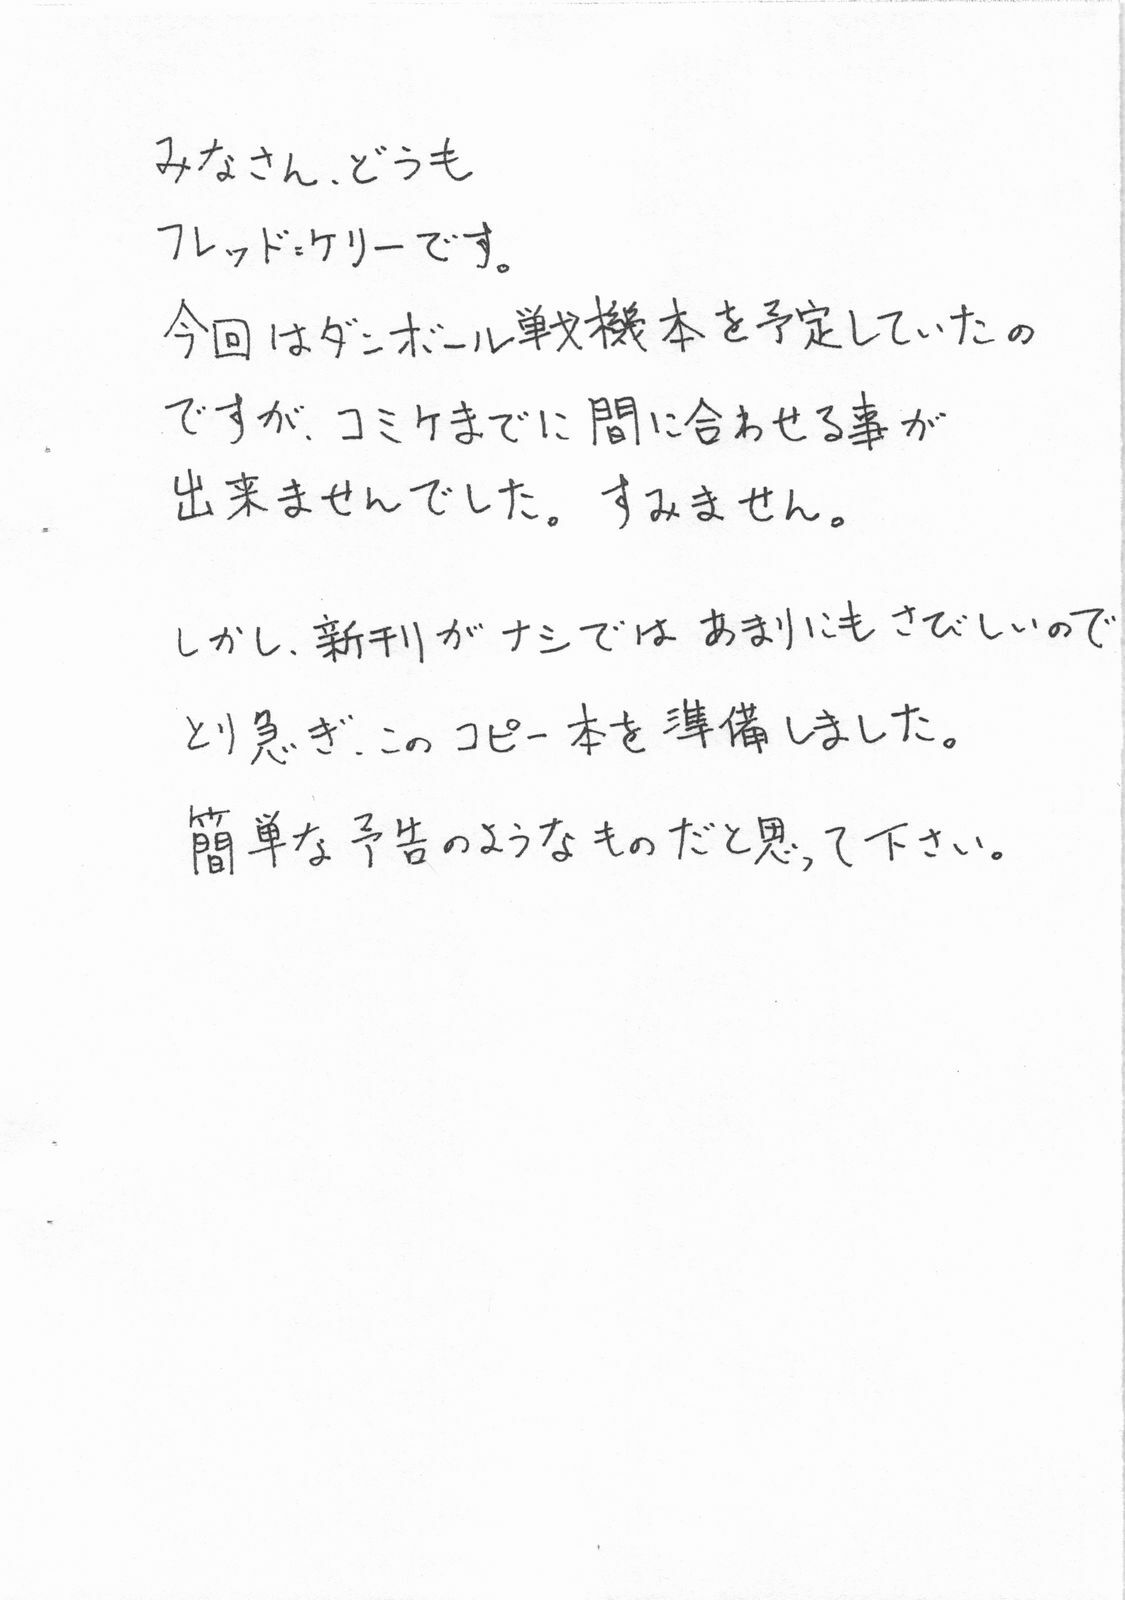 みなさん、どうも
フレッド=ケリーです。
今回はダンボール戦機本を予定していたの
ですが、コミケまでに間に合わせる事が
出来ませんでした。すみません。
しかし、新刊がナシではあまりにもさびしいので
とり急ぎ、このコピー本を準備しました。
簡単な予告のようなものだと思って下さい。